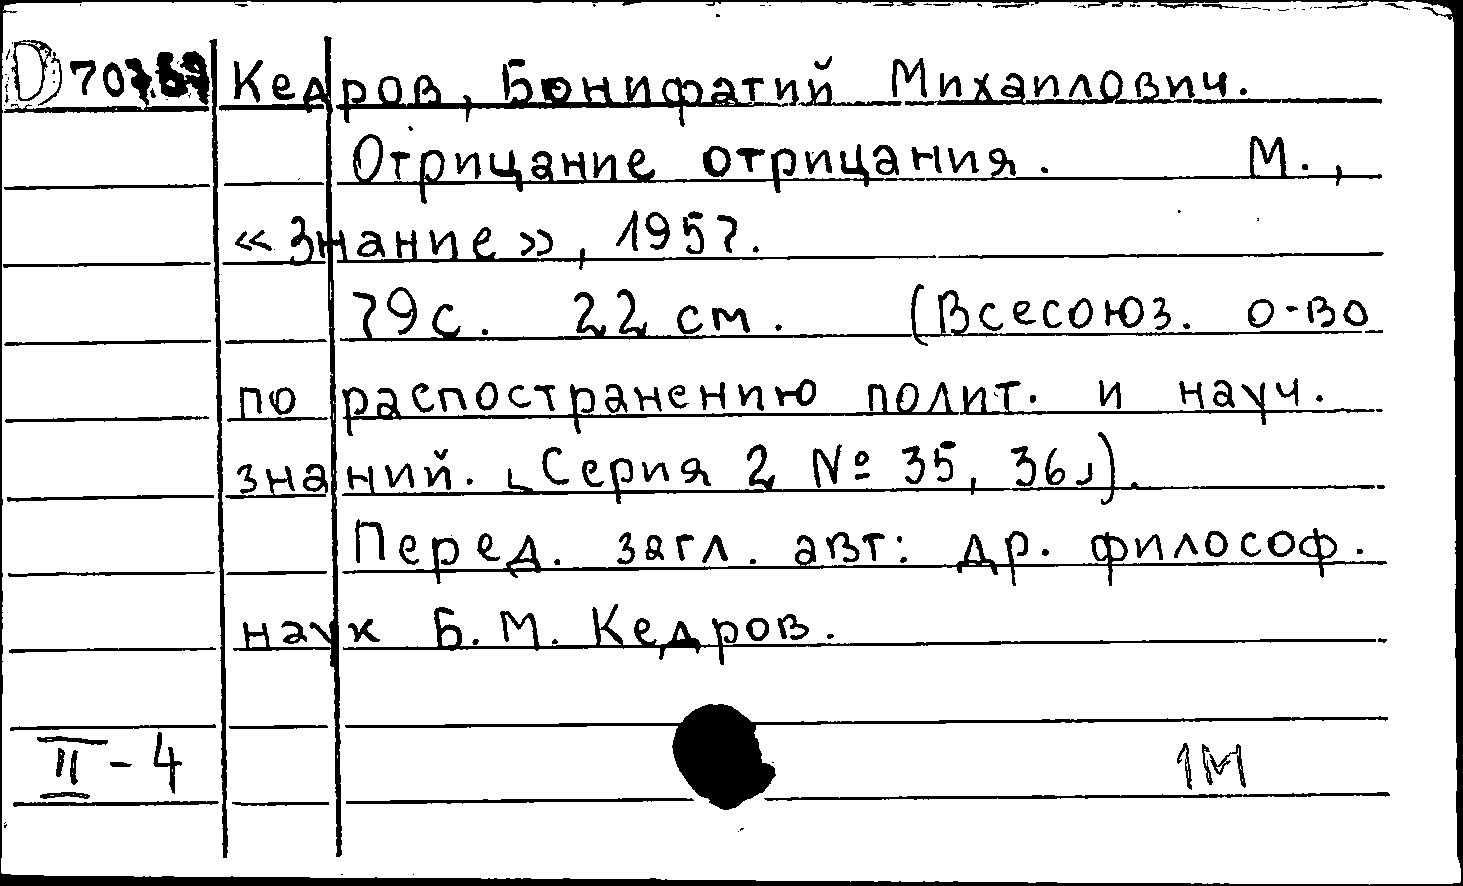 D 70789 Кедров, Бонифатий Михаплович.
Отрицание отрицания. М.,
«Знание», 1957.
79с. 22 см. (Всесоюз. о-во
по распостранению полит. и науч.
знаний. ⌞Серия 2 № 35, 36⌟).
Перед. загл. авт: др. философ.
наук Б. М. Кедров.
II - 4 1М